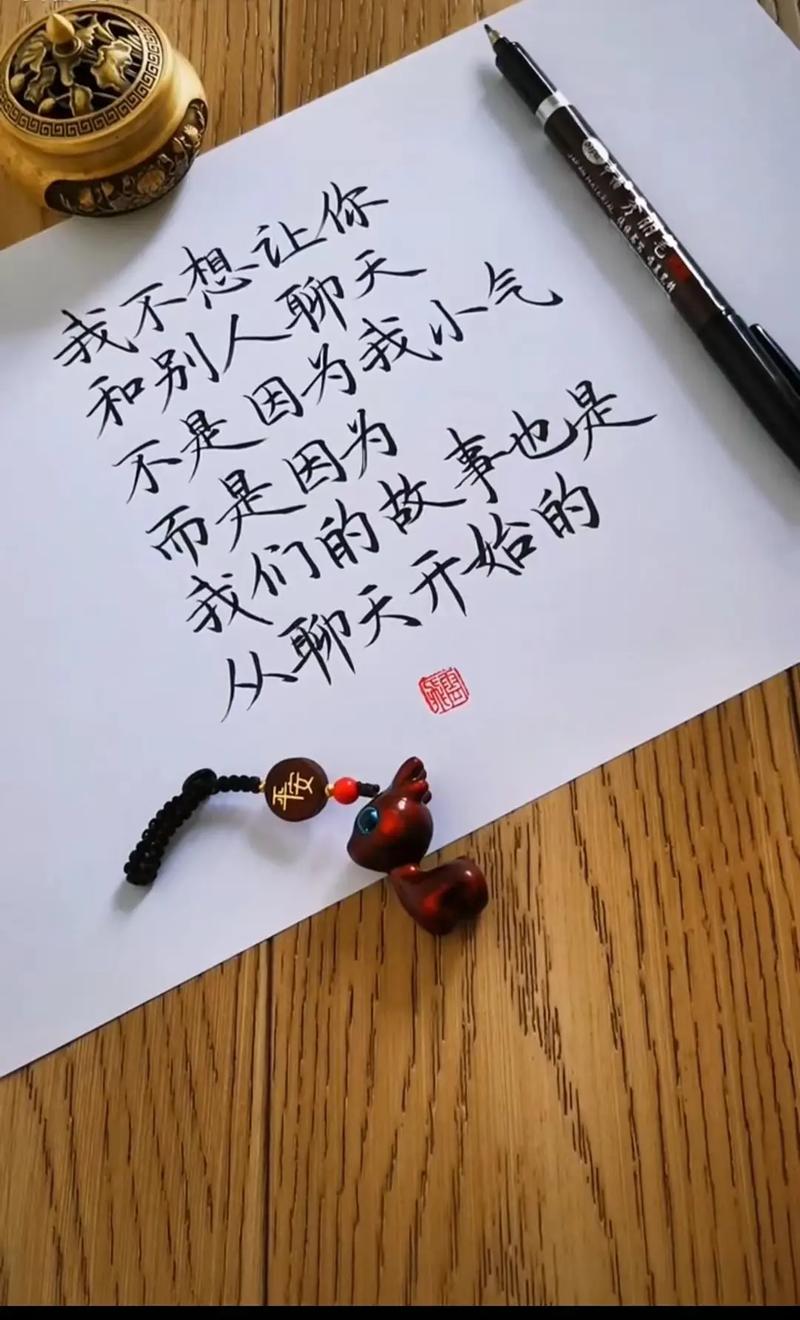 我不想让你
和别人聊天
不是因为我小气
而是因为
我们的故事也是
从聊天开始的
平安